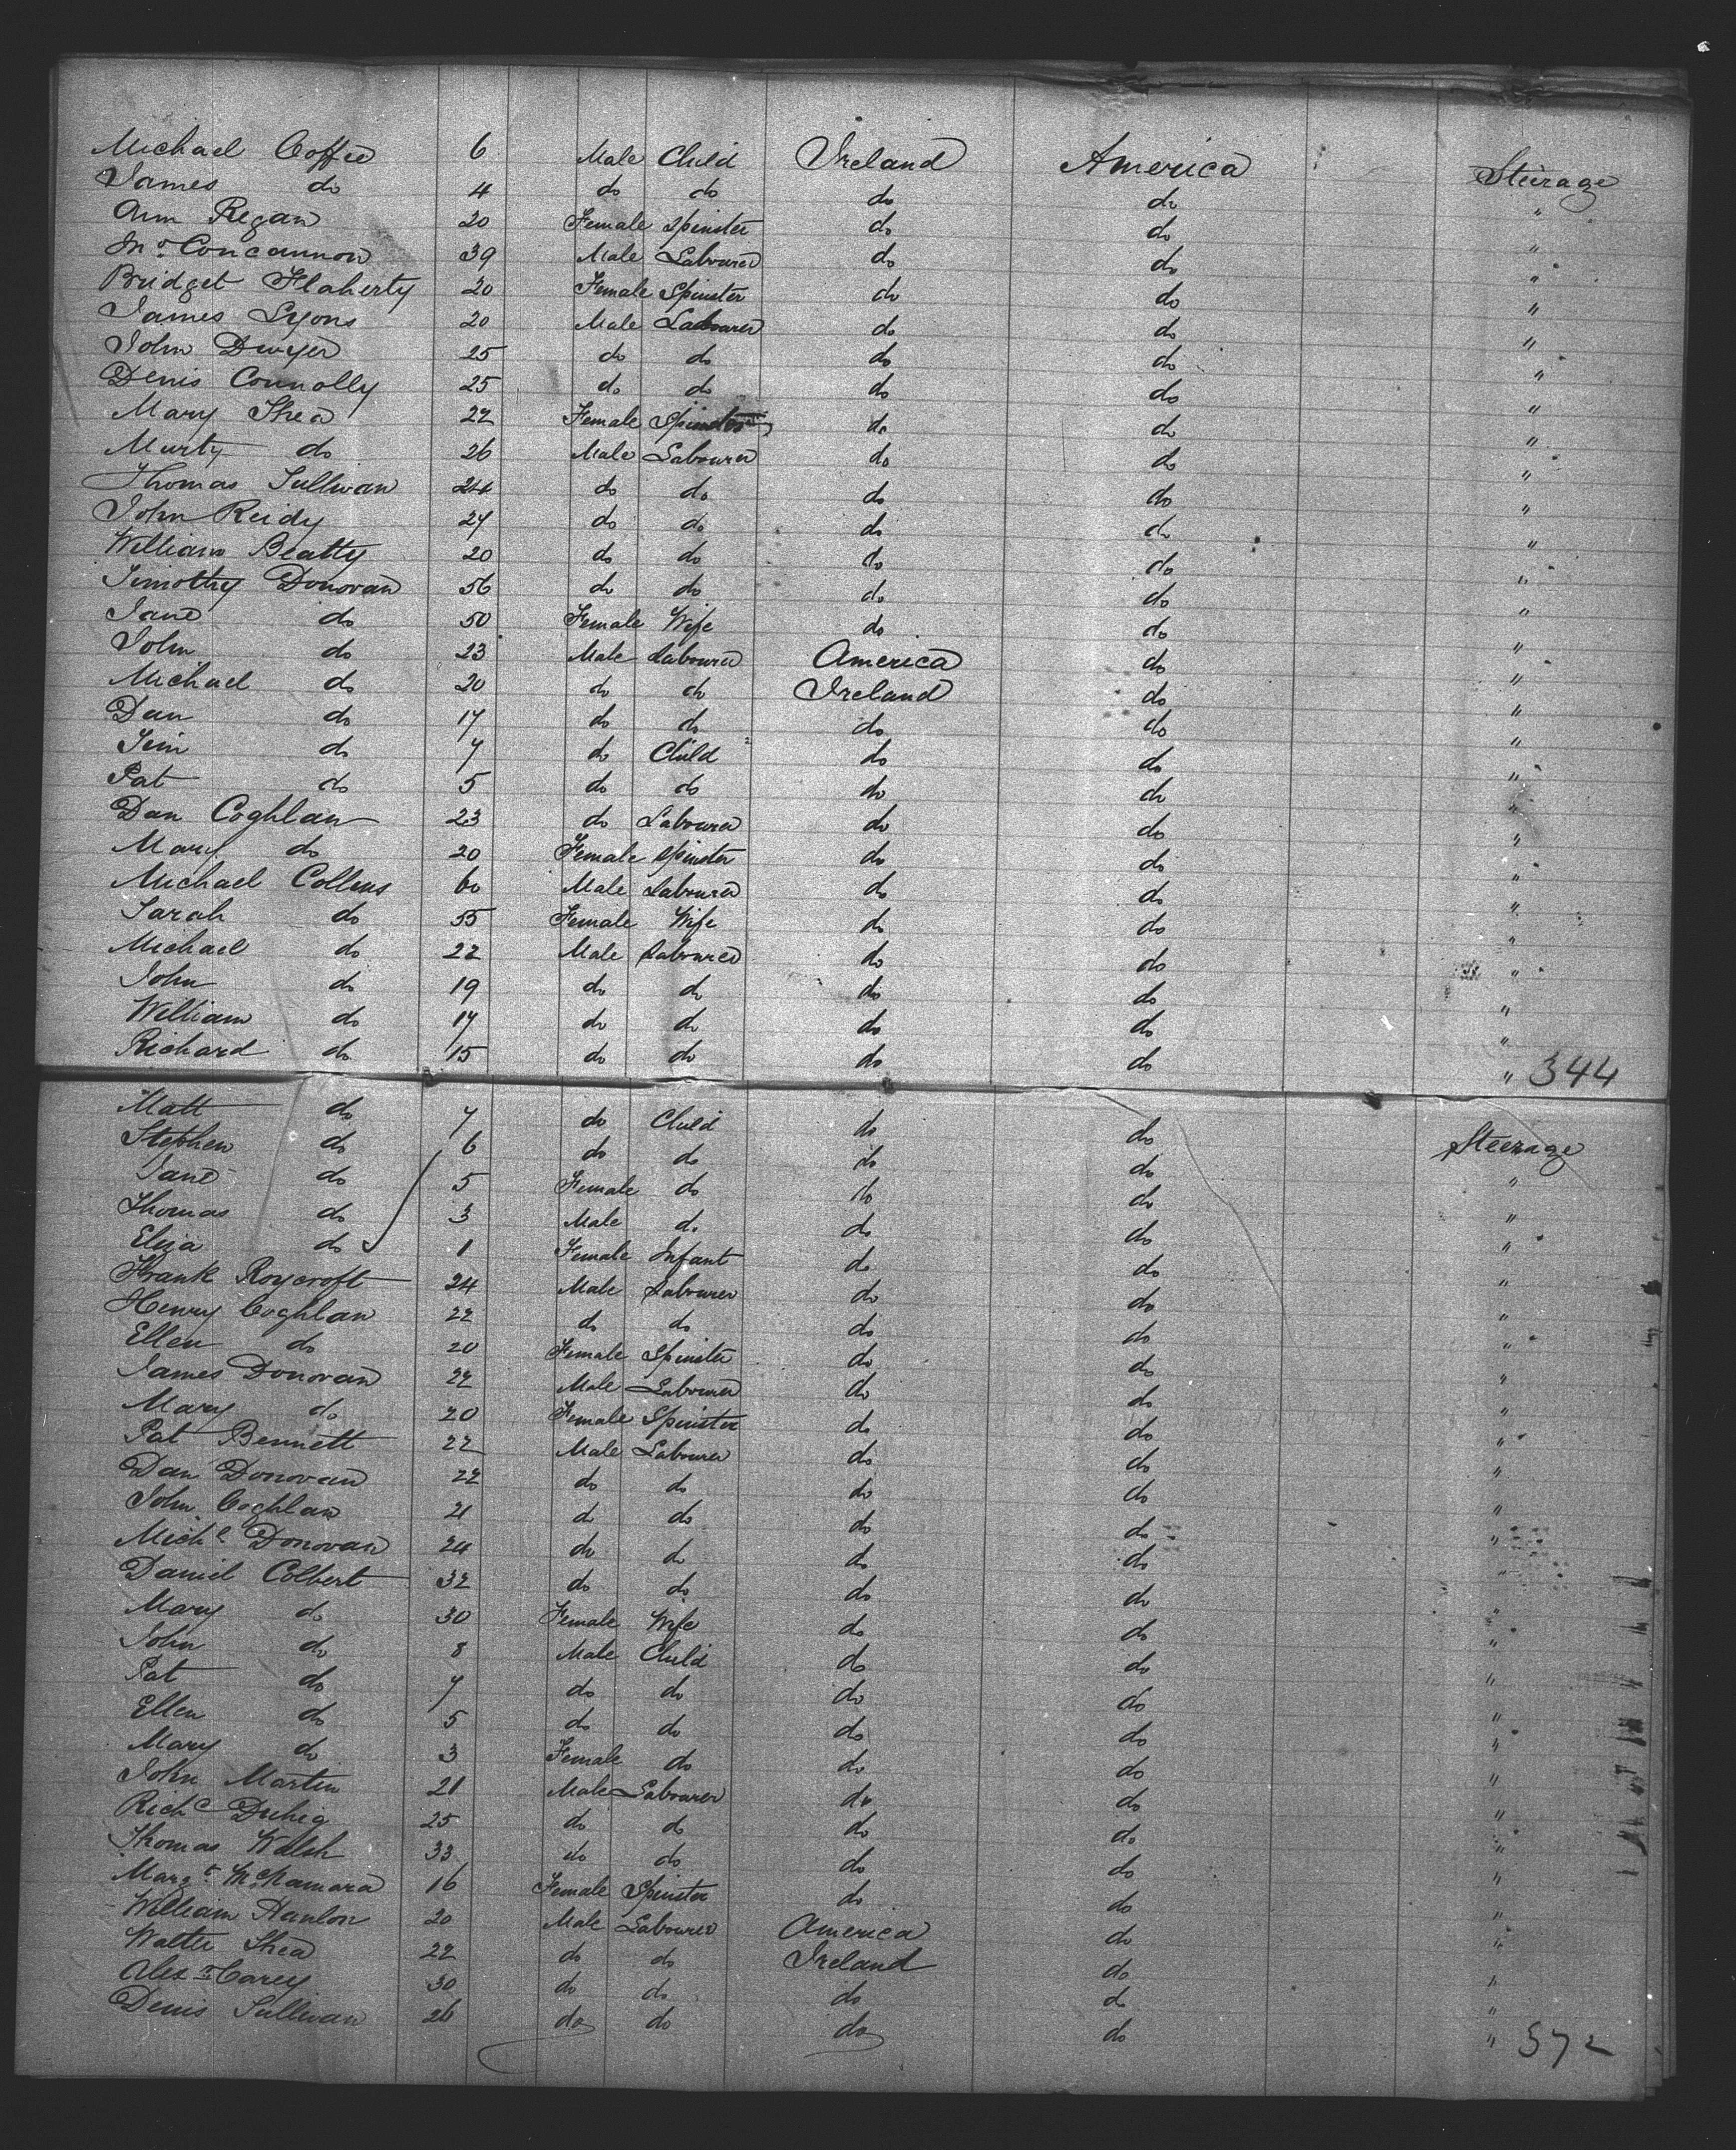 Michael Coffee 6 Male Child Ireland America Steerage
James do 4 do do do do "
Ann Regan 20 Female Spinster do do "
Mr. Concannon 39 Male Labourer do do "
Bridget Flaherty 20 Female Spinster do do "
James Lyons 20 Male Labourer do do "
John Dwyer 25 do do do do "
Denis Connolly 25 do do do do "
Mary Shea 22 Female Spinster do do "
Murty do 26 Male Labourer do do "
Thomas Sullivan 24 do do do do "
John Reidy 27 do do do do "
William Beatty 20 do do do do "
Timothy Donovan 56 do do do do "
Jane do 50 Female Wife do do "
John do 23 Male Labourer America do "
Michael do 20 do do Ireland do "
Dan do 17 do do do do "
Jim do 7 do Child do do "
Pat do 5 do do do do "
Dan Coghlan 23 do Labourer do do "
Mary do 20 Female Spinster do do "
Michael Collins 60 Male Labourer do do "
Sarah do 55 Female Wife do do "
Michael do 22 Male Labourer do do "
John do 19 do do do do "
William do 17 do do do do "
Richard do 15 do do do do " 344
Matt do 7 do Child do do Steerage
Stephen do 6 do do do do "
Jane do 5 Female do do do "
Thomas do 3 Male do do do "
Eliza do 1 Female Infant do do "
Frank Roycroft 24 Male Labourer do do "
Henry Coghlan 22 do do do do "
Ellen do 20 Female Spinster do do "
James Donovan 22 Male Labourer do do "
Mary do 20 Female Spinster do do "
Pat Bennett 22 Male Labourer do do "
Dan Donovan 22 do do do do "
John Coghlan 21 do do do do "
Michl Donovan 24 do do do do "
Daniel Colbert 32 do do do do "
Mary do 30 Female Wife do do "
John do 8 Male Child do do "
Pat do 7 do do do do "
Ellen do 5 do do do do "
Mary do 3 Female do do do "
John Martin 21 Male Labourer do do "
Richd Duhig 25 do do do do "
Thomas Walsh 33 do do do do "
Margt McNamara 16 Female Spinster do do "
William Hanlon 20 Male Labourer America do "
Walter Shea 22 do do Ireland do "
Alexr Carey 30 do do do do "
Denis Sullivan 26 do do do do " 372